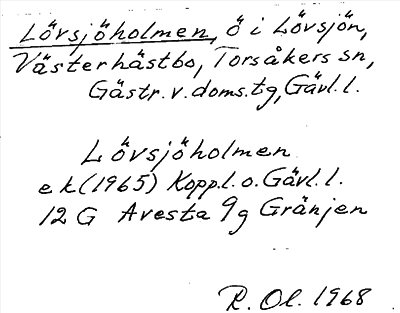 Lövsjöholmen, ö i Lövsjön,
Västerhästbo, Torsåkers sn,
Gästr. v. doms. tg, Gävl. l.
Lövsjöholmen
ek (1965) Kopp. l. o. Gävl. l.
12 G Avesta 9g Gränjen
R. Ol. 1968